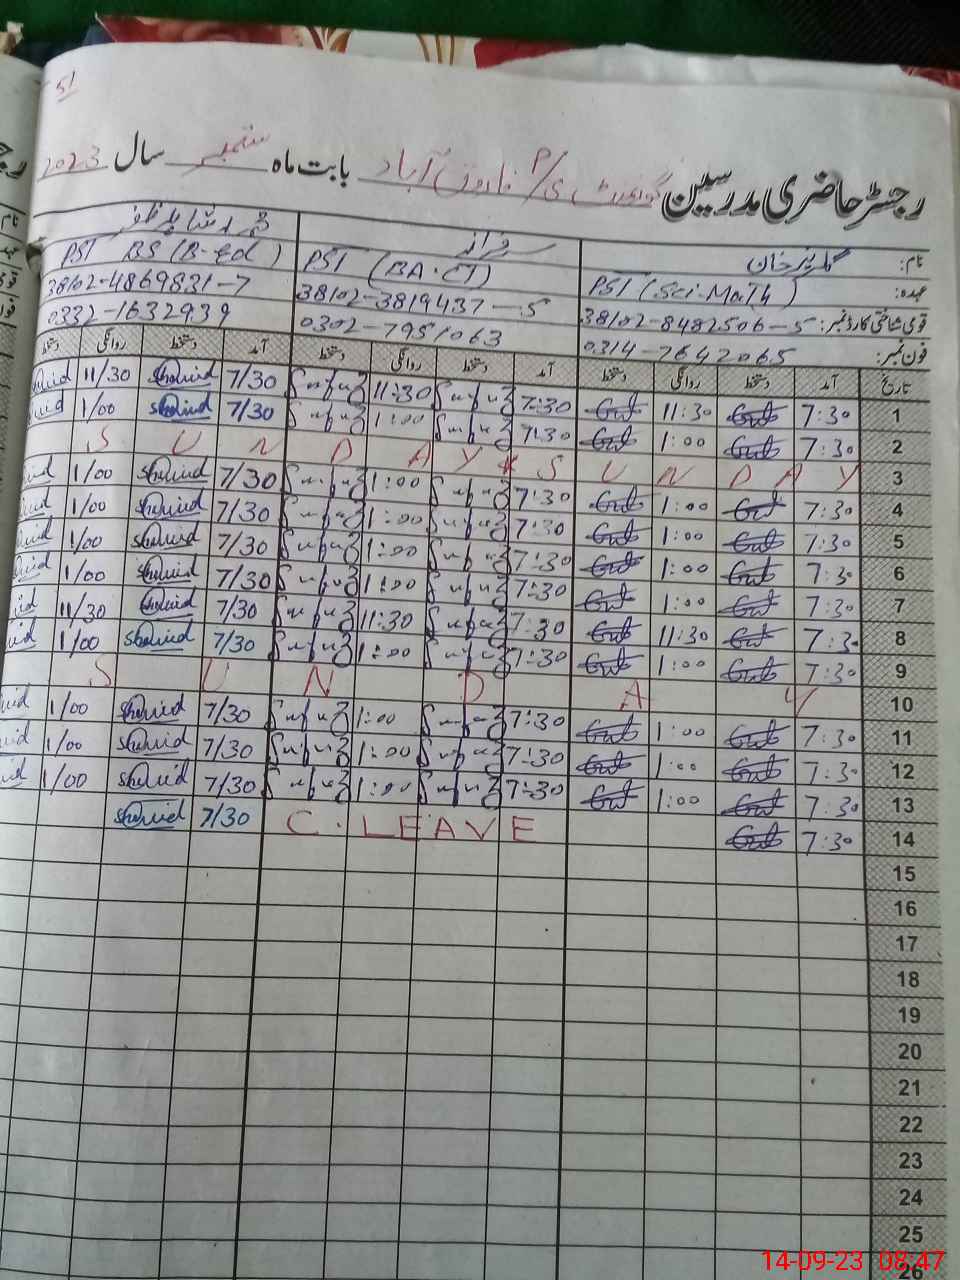 51
رجسٹر حاضری مدرسین گورنمنٹ P/ی فاروق آباد بابت ماہ ستمبر سال 2023
نام: گلریز خان سرفراز محمد شاہد ظفر
عہدہ: PST (Sci-Math) PST (BA-CT) PST BS (B-Ed)
قومی شناختی کارڈ نمبر: 38102-8482506-5 38102-3819437-5 38102-4869821-7
فون نمبر: 0314-7642065 0302-7951063 0332-1632939
تاریخ آمد دستخط روانگی دستخط آمد دستخط روانگی دستخط آمد دستخط روانگی دستخط
1 7:30 11:30 7:30 11:30 7/30 Shahid 11/30
2 7:30 1:00 7:30 1:00 7/30 Shahid 1/00
3 SUNDAY * SUNDAY
4 7:30 1:00 7:30 1:00 7/30 Shahid 1/00
5 7:30 1:00 7:30 1:00 7/30 Shahid 1/00
6 7:30 1:00 7:30 1:00 7/30 Shahid 1/00
7 7:30 1:00 7:30 1:00 7/30 Shahid 1/00
8 7:30 11:30 7:30 11:30 7/30 Shahid 11/30
9 7:30 1:00 7:30 1:00 7/30 Shahid 1/00
10 SUNDAY
11 7:30 1:00 7:30 1:00 7/30 Shahid 1/00
12 7:30 1:00 7:30 1:00 7/30 Shahid 1/00
13 7:30 1:00 7:30 1:00 7/30 Shahid 1/00
14 7:30 C. LEAVE 7/30 Shahid
15
16
17
18
19
20
21
22
23
24
25
26
14-09-23 08:47